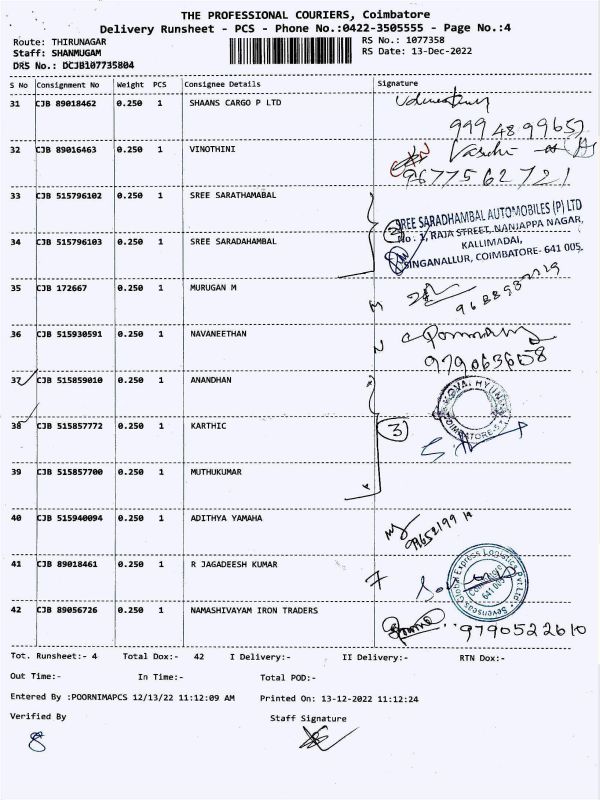 THE PROFESSIONAL COURIERS, Coimbatore
Delivery Runsheet - PCS - Phone No.:0422-3505555 - Page No.:4
Route: THIRUNAGAR
RS No.: 1077358
Staff: SHANMUGAM
RS Date: 13-Dec-2022
DRS No.: DCJB107735804
S No Consignment No Weight PCS Consignee Details Signature
31 CJB 89018462 0.250 1 SHAANS CARGO P LTD
32 CJB 89016463 0.250 1 VINOTHINI
9677562721
33 CJB 515796102 0.250 1 SREE SARATHAMABAL
SREE SARADHAMBAL AUTOMOBILES (P) LTD
No : 1, RAJA STREET, NANJAPPA NAGAR,
KALLIMADAI,
SINGANALLUR, COIMBATORE- 641 005.
34 CJB 515796103 0.250 1 SREE SARADAHAMBAL
35 CJB 172667 0.250 1 MURUGAN M
36 CJB 515930591 0.250 1 NAVANEETHAN
979063658
37 CJB 515859010 0.250 1 ANANDHAN
38 CJB 515857772 0.250 1 KARTHIC
3
39 CJB 515857700 0.250 1 MUTHUKUMAR
40 CJB 515940094 0.250 1 ADITHYA YAMAHA
41 CJB 89018461 0.250 1 R JAGADEESH KUMAR
Sevenseas Global Express Logistics Pvt.Ltd.
Coimbatore
641 005
42 CJB 89056726 0.250 1 NAMASHIVAYAM IRON TRADERS
9790522610
Tot. Runsheet:- 4 Total Dox:- 42 I Delivery:- II Delivery:- RTN Dox:-
Out Time:- In Time:- Total POD:-
Entered By :POORNIMAPCS 12/13/22 11:12:09 AM Printed On: 13-12-2022 11:12:24
Verified By Staff Signature